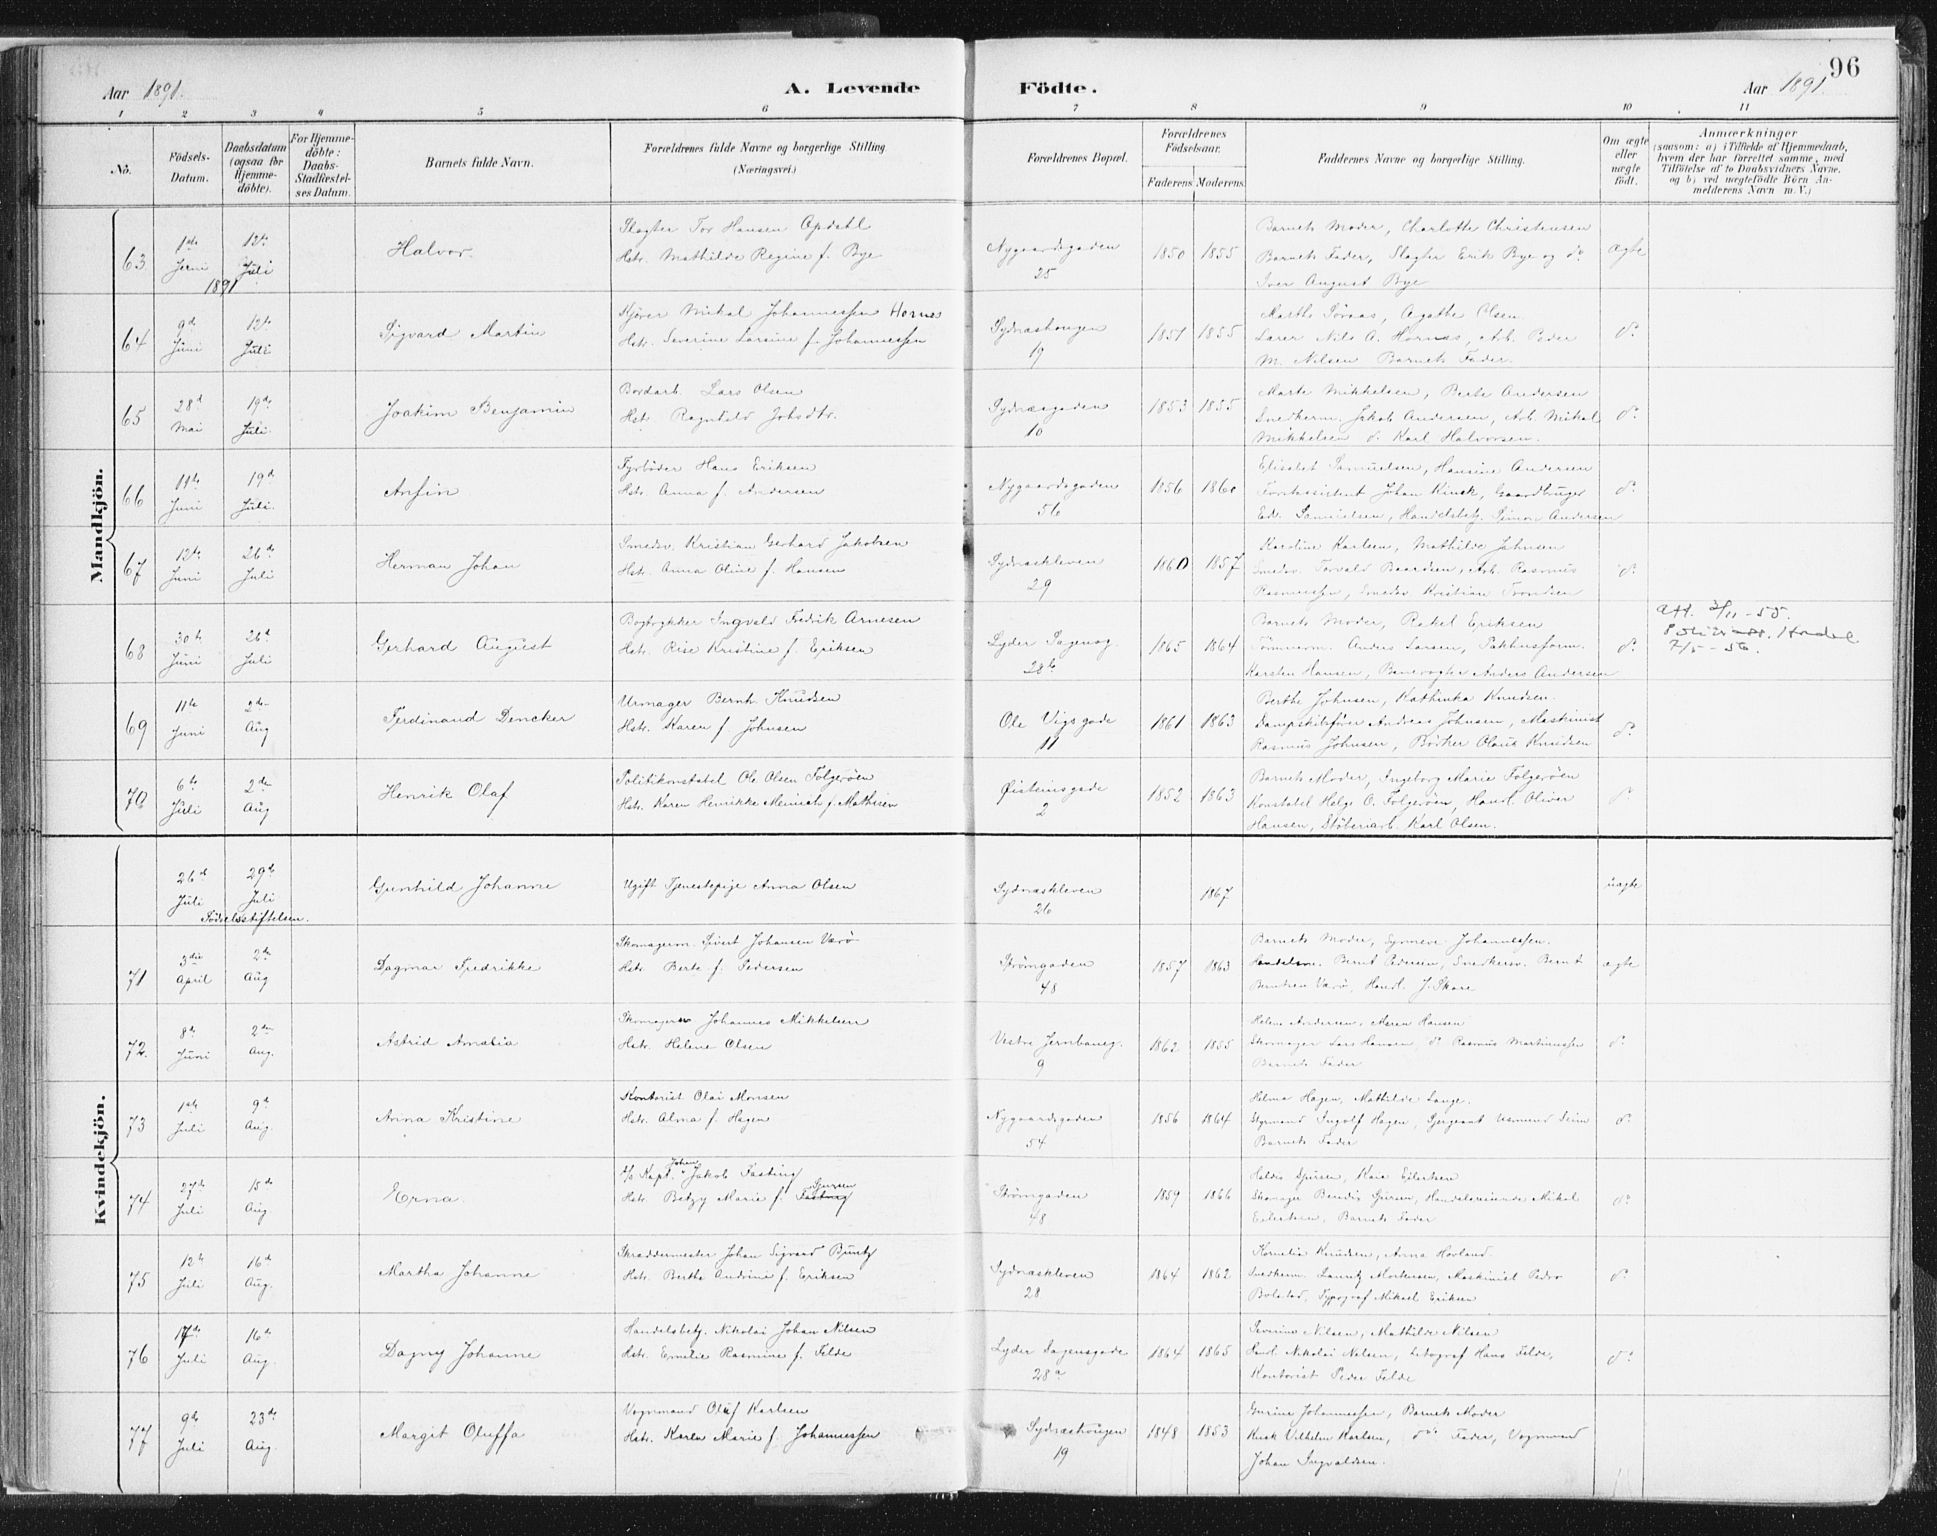 96
Aar 1891. A. Levende Födte. Aar 1891
1 2 3 4 5 6 7 8 9 10 11
No. Födsels-Datum. Daabsdatum (ogsaa for Hjemmedöbte). For Hjemmedöbte: Daabs-Stadfæstelses Datum. Barnets fulde Navn. Forældrenes fulde Navne og borgerlige Stilling (Næringsvei.) Forældrenes Bopæl. Forældrenes Födselsaar. Faderens Moderens Faddernes Navne og borgerlige Stilling. Om ægte eller uægte födt. Anmærkninger (saasom: a) i Tilfælde af Hjemmedaab, hvem der har forrettet samme, med Tilföielse af to Daabsvidners Navne, og b) ved uægtefödte Börn Anmelderens Navn m. V.)
Mandkjön.
Slagter Tor Hansen Opdahl Barnets Moder, Charlotte Christensen
63 1ste Juni 12te Juli Halvor. Hstr. Mathilde Regine f. Bye Nygaardsgaden 25 1850 1855 Barnets Fader, Slagter Erik Bye og do ægte
1891 Iver August Bye
Kjører Mikal Johannessen Hornes Marthe Søraas, Agathe Olsen
64 9d Juni 12te Juli Sigvard Martin Hstr. Severine Larsine f. Johannessen Sydnæshougen 19 1851 1855 Lærer Nils A. Hornæs, Arb. Peder do
M. Nilsen Barnets Fader.
Bordarb. Lars Olsen Marte Mikkelsen, Berte Andersen
65 28d Mai 19de Juli Joakim Benjamin Hstr. Ragnhild Jobsdtr. Sydnæsgaden 10 1853 1855 Snedkerm. Jakob Andersen, Arb. Mikal do
Mikkelsen do Karl Halvorsen.
Fyrbøder Hans Eriksen Elisabet Samuelsen, Hansine Andersen
66 11te Juni 19d Juli. Anfin Hstr. Anna f. Andersen Nygaardsgaden 56 1856 1860 Johan Kinck, Gaardbruger do
Edv. Samuelsen, Handelsbetj. Simon Andersen
Smedsv. Kristian Gerhard Jakobsen Karoline Karlsen, Mathilde Jahnsen
67 12te Juni 26de Juli Herman Johan Hstr. Anna Oline f. Hansen Sydnæskleven 29 1860 1857 Smedsv. Torvald Baardsen, Arb. Rasmus do
Rasmussen, Smedsv. Kristian Trondsen
Bogtrykker Ingvald Fredrik Arnesen Barnets Moder, Rakel Eriksen Att. 3/11-55.
68 30te Juni 26d Juli Gerhard August Hstr. Rise Kristine f. Eriksen Lyder Sagensg. 28b 1865 1864 Tømmerm. Anders Larsen, Pakhusform. do 7/5-56.
Karsten Hansen, Banevogter Anders Andersen
Urmager Bernh. Knudsen Berthe Johnsen, Kathinka Knudsen.
69 11te Juni 2den Aug Ferdinand Dencker Hstr. Karen f. Johnsen Ole Vigsgade 11 1861 1863 Dampskibsfører Andreas Johnsen, Maskinist do
Rasmus Johnsen, Bødker Olaus Knudsen
Politikonstabel Ole Olsen Folgerøen Barnets Moder, Ingeborg Marie Folgerøen
70 6te Juli 2den Aug Henrik Olaf Hstr. Karen Henrikke Meinich f. Mathisen Øisteinsgade 2 1852 1863 Konstabel Helge O. Folgerøen, Handl. Oliver do
Hansen, Støberiarb. Karl Olsen.
Kvindekjön.
26d Juli 29de Juli Gunhild Johanne Ugift Tjenestepige Anna Olsen Sydnæskleven 26 1867 uægte
Fødselsstiftelsen.
Skomagerm. Sivert Johansen Værø Barnets Moder, Synneve Johannessen.
71 3die April 2den Aug Dagmar Fredrikke Hstr. Berte f. Pedersen Strømgaden 48 1857 1863 Bernt Pedersen, Snedkersv. Bernt ægte
Berntsen Værø, Handl. J. Skare
Skomagersv Johannes Mikkelsen Helene Andersen, Maren Hansen
72. 8de Juni 2den Aug. Astrid Amalia Hstr. Helene Olsen Vestre Jernbaneg. 9 1862 1855 Skomager Lars Hansen, do Rasmus Martinussen do
Barnets Fader
Kontorist Olai Monsen Helma Hagen, Mathilde Lange.
73 1ste Juli 9d Aug. Anna Kristine Hstr. Alma f. Hagen Nygaardsgaden 54 1856 1864 Styrmand Ingolf Hagen, Sjergeant Seim do
Barnets Fader
Kapt. Johan Jakob Fasting
74 27de Juli 15de Aug Erna. Hstr. Betzy Marie f. Fasting Gjursen Strømgaden 48 1859 1866 Skomager Bendix Gjursen, Handelsreisende Mikal do
Eilertsen, Barnets Fader
Skræddermester Johan Sigvard Buntz Kornelia Knudsen, Anna Hovland.
75 12te Juli 16de Aug. Martha Johanne Hstr. Berthe Andrine f. Eriksen Sydnæskleven 28 1864 1862 Snedkerm. Lauritz Mortensen, Maskinist Pedro do
Bolstad, Typograf Mikael Eriksen
Handelsbetj. Nikolai Johan Nilsen Severine Nilsen, Mathilde Nilsen
76 17de Juli 16de Aug. Dagny Johanne Hstr. Emilie Rasmine f. Felde Lyder Sagensgade 28a 1864 1865 Handl. Nikolai Nilsen, Litograf Hans Felde, do
Kontorist Peder Felde
Vognmand Oluf Karlsen Gurine Johannessen, Barnets Moder
77 9de Juli 23de Aug. Margit Oluffa Hstr. Karen Marie f. Johannessen Sydnæshougen 19 1848 1853 Kusk Vilhelm Karlsen, do Fader, Vognmand
Johan Ingvaldsen.